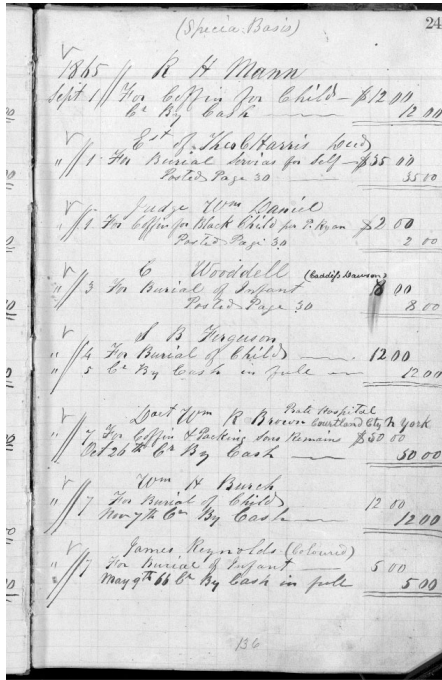 (Specia. Basis)
24
1865 // R H Mann
Sept 1 // For Coffin for Child — $12 00
Cr By Cash — 12 00
Est of Theo C Harris Decd
" // 1 For Burial Servias for Self — $35 00
Posted Page 30 35 00
Judge Wm Daniel
" // 1 For Coffin for Black Child for P. Ryan $2 00
Posted Page 30 2 00
C Wooddell (Caddiss Dawson)
" // 3 For Burial of Infant 8 00
Posted Page 30 8 00
S B Ferguson
" // 4 For Burial of Child — 12 00
" // 5 Cr By Cash in full — 12 00
Wm R Brown Pratt Hospital
Courtland Cty N York
" // 7 For Coffin & Packing Sons Remains $50 00
Oct 26th Cr By Cash — 50 00
Wm H Burch
" // 7 For Burial of Child 12 00
Nov 7th Cr By Cash — 12 00
James Reynolds (Coloured)
" // 7 For Burial of Infant — 5 00
May 9th 66 Cr By Cash in full 5 00
136